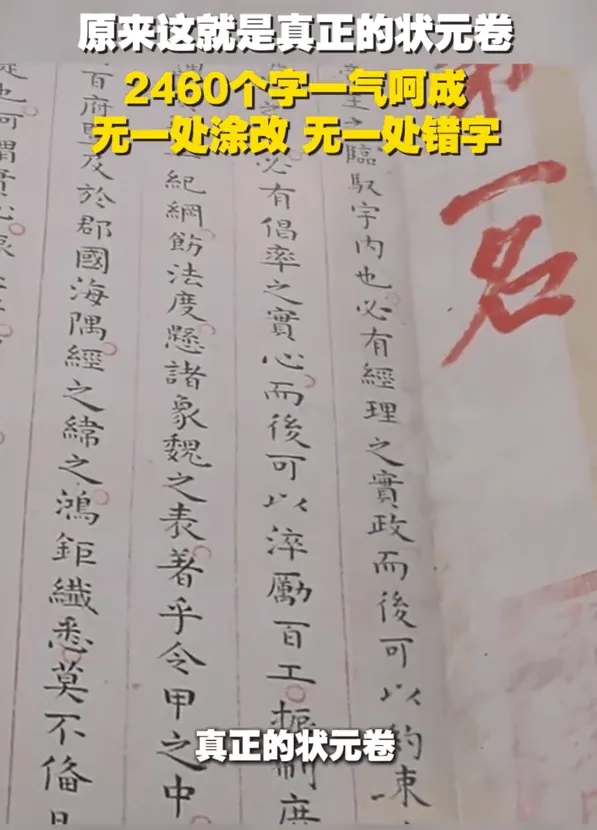 原来这就是真正的状元卷
2460个字一气呵成
无一处涂改 无一处错字
一名
之臨馭宇內也必有經理之實政而後可以約束
必有倡率之實心而後可以淬勵百工振
紀綱飭法度懸諸象魏之表著乎令甲之中
百府暨及於郡國海隅經之緯之鴻鉅纖悉莫不備
也可謂實心
真正的状元卷